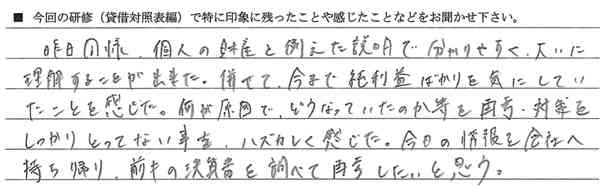 ■ 今回の研修（貸借対照表編）で特に印象に残ったことや感じたことなどをお聞かせ下さい。
昨日同様、個人の財産と例えた説明で分かりやすく、大いに
理解することが出来た。併せて、今まで純利益ばかりを気にしてい
たことを感じた。何が原因で、どうなっていたのか等を再考・対策を
しっかりとってない事を、ハズカしく感じた。今日の情報を会社へ
持ち帰り、前キの決算書を調べて再考したいと思う。